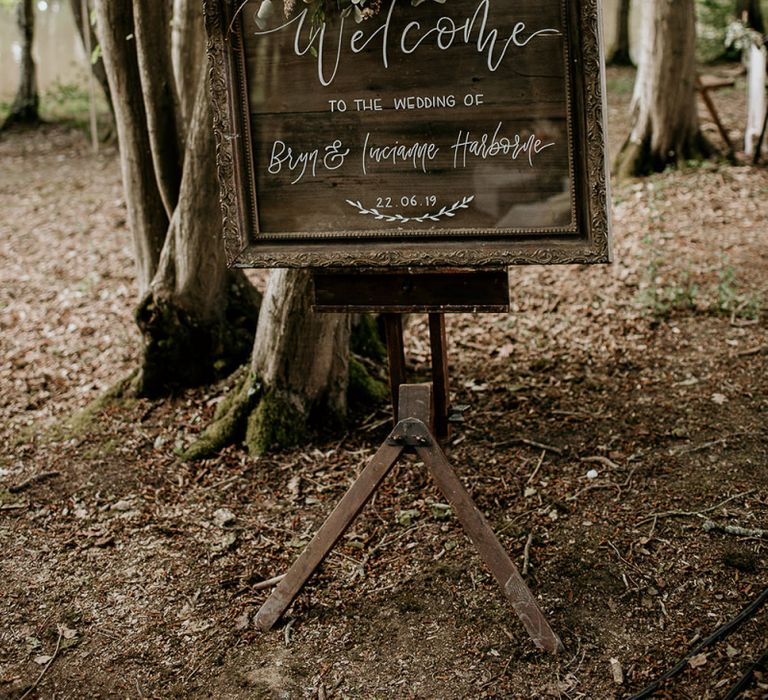 Welcome
TO THE WEDDING OF
Bryn & Lucianne Harborne
22.06.19